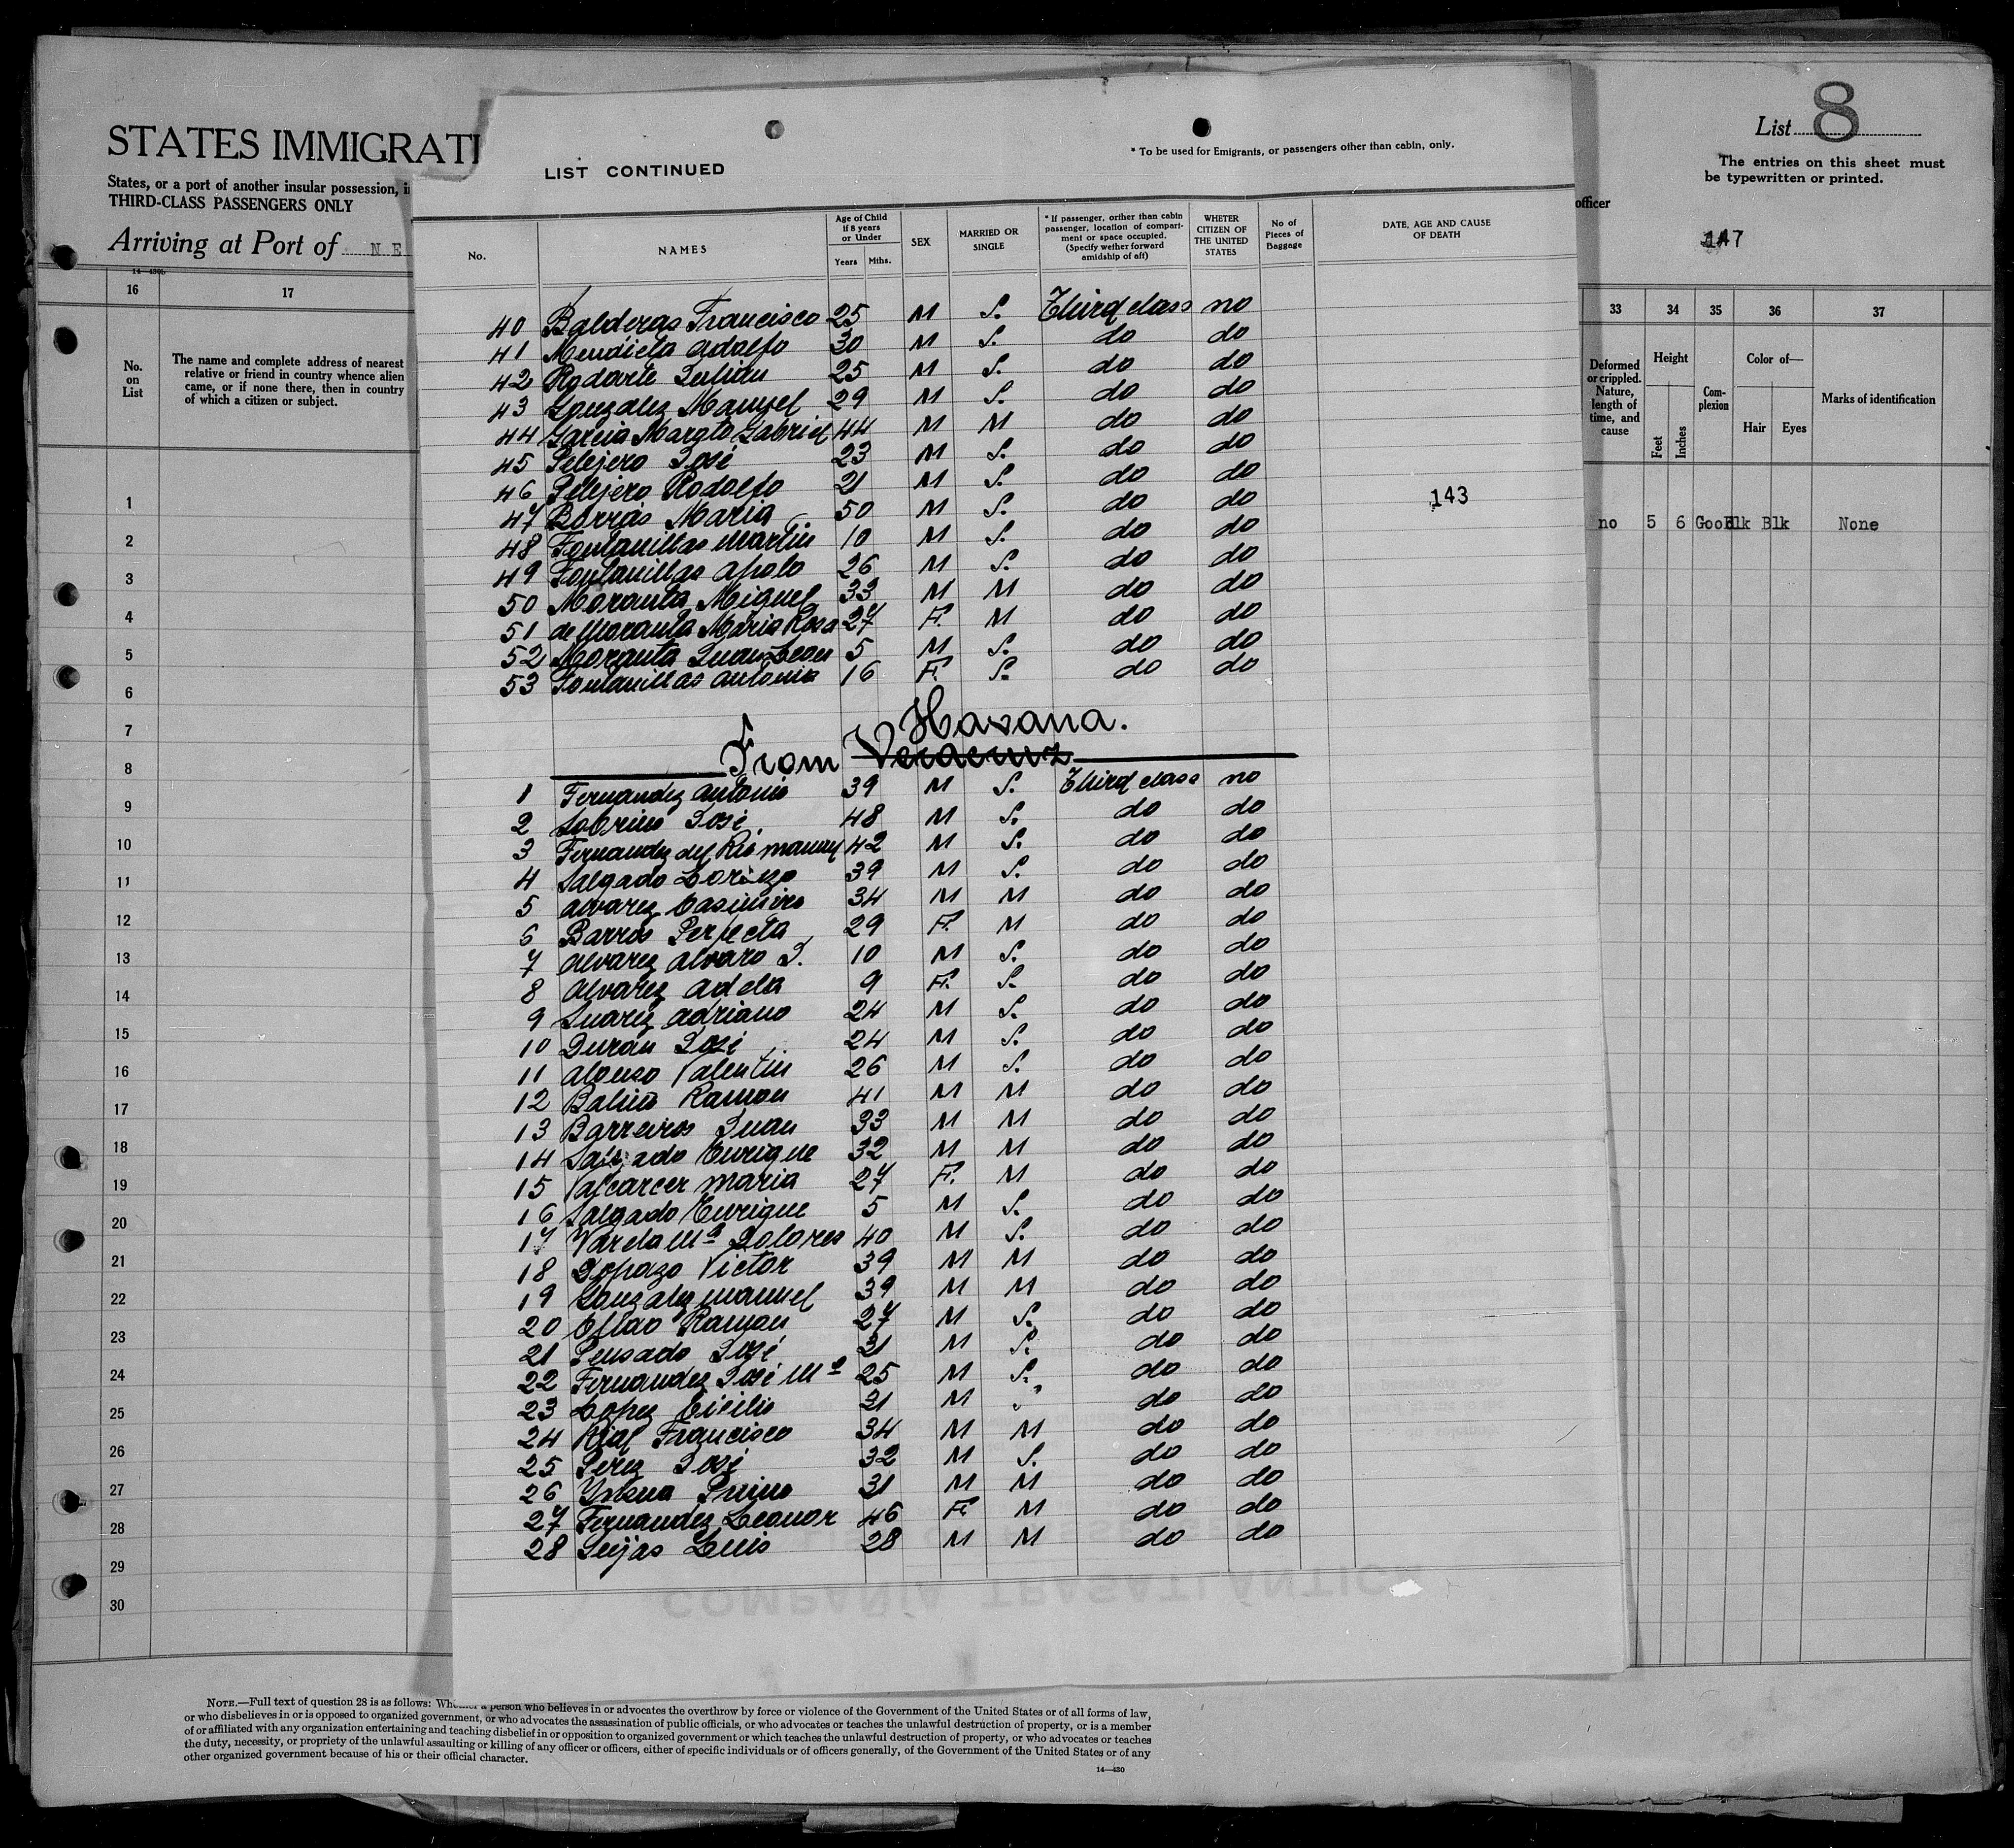 STATES IMMIGRATI
States, or a port of another insular possession, i
THIRD-CLASS PASSENGERS ONLY
Arriving at Port of N E
List 8
The entries on this sheet must
be typewritten or printed.
officer
147
LIST CONTINUED
* To be used for Emigrants, or passengers other than cabin, only.
No. NAMES Age of Child if 8 years or Under Years Mths. SEX MARRIED OR SINGLE * If passenger, orther than cabin passenger, location of compartment or space occupied. (Specify wether forward amidship of aft) WHETER CITIZEN OF THE UNITED STATES No of Pieces of Baggage DATE, AGE AND CAUSE OF DEATH
40 Balderas Francisco 25 M S. Third class no
41 Mendieta Adolfo 30 M S. do do
42 Rodarte Julian 25 M S. do do
43 Gonzalez Manuel 29 M S. do do
44 Garcia Marato Gabriel 44 M M do do
45 Pelejero José 23 M S. do do
46 Pelejero Rodolfo 21 M S. do do
47 Borrás Maria 50 M S. do do
143
48 Fontanillas Martin 10 M S. do do
49 Fontanillas Apolo 26 M S. do do
50 Moranta Miguel 33 M M do do
51 de Moranta Maria Rosa 27 F. M do do
52 Moranta Juan Leon 5 M S. do do
53 Fontanillas Antonia 16 F. S. do do
Havana.
From Veracruz
1 Fernandez Antonio 39 M S. Third class no
2 Sobrino José 48 M S. do do
3 Fernandez del Rio Manuel 42 M S. do do
4 Salgado Lorenzo 39 M S. do do
5 Alvarez Casimiro 34 M M do do
6 Barros Perfecta 29 F. M do do
7 Alvarez Alvaro J. 10 M S. do do
8 Alvarez Adela 9 F. S. do do
9 Suarez Adriano 24 M S. do do
10 Durán José 24 M S. do do
11 Alonso Valentin 26 M S. do do
12 Ramon 41 M M do do
13 Barreiros Juan 33 M M do do
14 Salgado Enrique 32 M M do do
15 Valcarcer Maria 27 F. M do do
16 Salgado Enrique 5 M S. do do
17 Varela Mª Dolores 40 M S. do do
18 Dopazo Victor 39 M M do do
19 Gonzalez Manuel 39 M M do do
20 Ramon 27 M S. do do
21 Pensado José 21 M S. do do
22 Fernandez José Mª 25 M S. do do
23 Lopez Cicilio M do do
24 Rial Francisco 34 M M do do
25 Perez José 32 M S. do do
26 31 M M do do
27 Fernandez Leonor 46 F. M do do
28 Seijas Luis 28 M M do do
COMPAÑÍA TRASATLÁNTIC
14—430b
16 17
No. on List
The name and complete address of nearest
relative or friend in country whence alien
came, or if none there, then in country
of which a citizen or subject.
1
2
3
4
5
6
7
8
9
10
11
12
13
14
15
16
17
18
19
20
21
22
23
24
25
26
27
28
29
30
33 34 35 36 37
Deformed or crippled. Nature, length of time, and cause
Height Feet Inches
Complexion
Color of— Hair Eyes
Marks of identification
no 5 6 Good Blk Blk None
NOTE.—Full text of question 28 is as follows: Whether a person who believes in or advocates the overthrow by force or violence of the Government of the United States or of all forms of law,
or who disbelieves in or is opposed to organized government, or who advocates the assassination of public officials, or who advocates or teaches the unlawful destruction of property, or is a member
of or affiliated with any organization entertaining and teaching disbelief in or opposition to organized government or which teaches the unlawful destruction of property, or who advocates or teaches
the duty, necessity, or propriety of the unlawful assaulting or killing of any officer or officers, either of specific individuals or of officers generally, of the Government of the United States or of any
other organized government because of his or their official character.
14—430